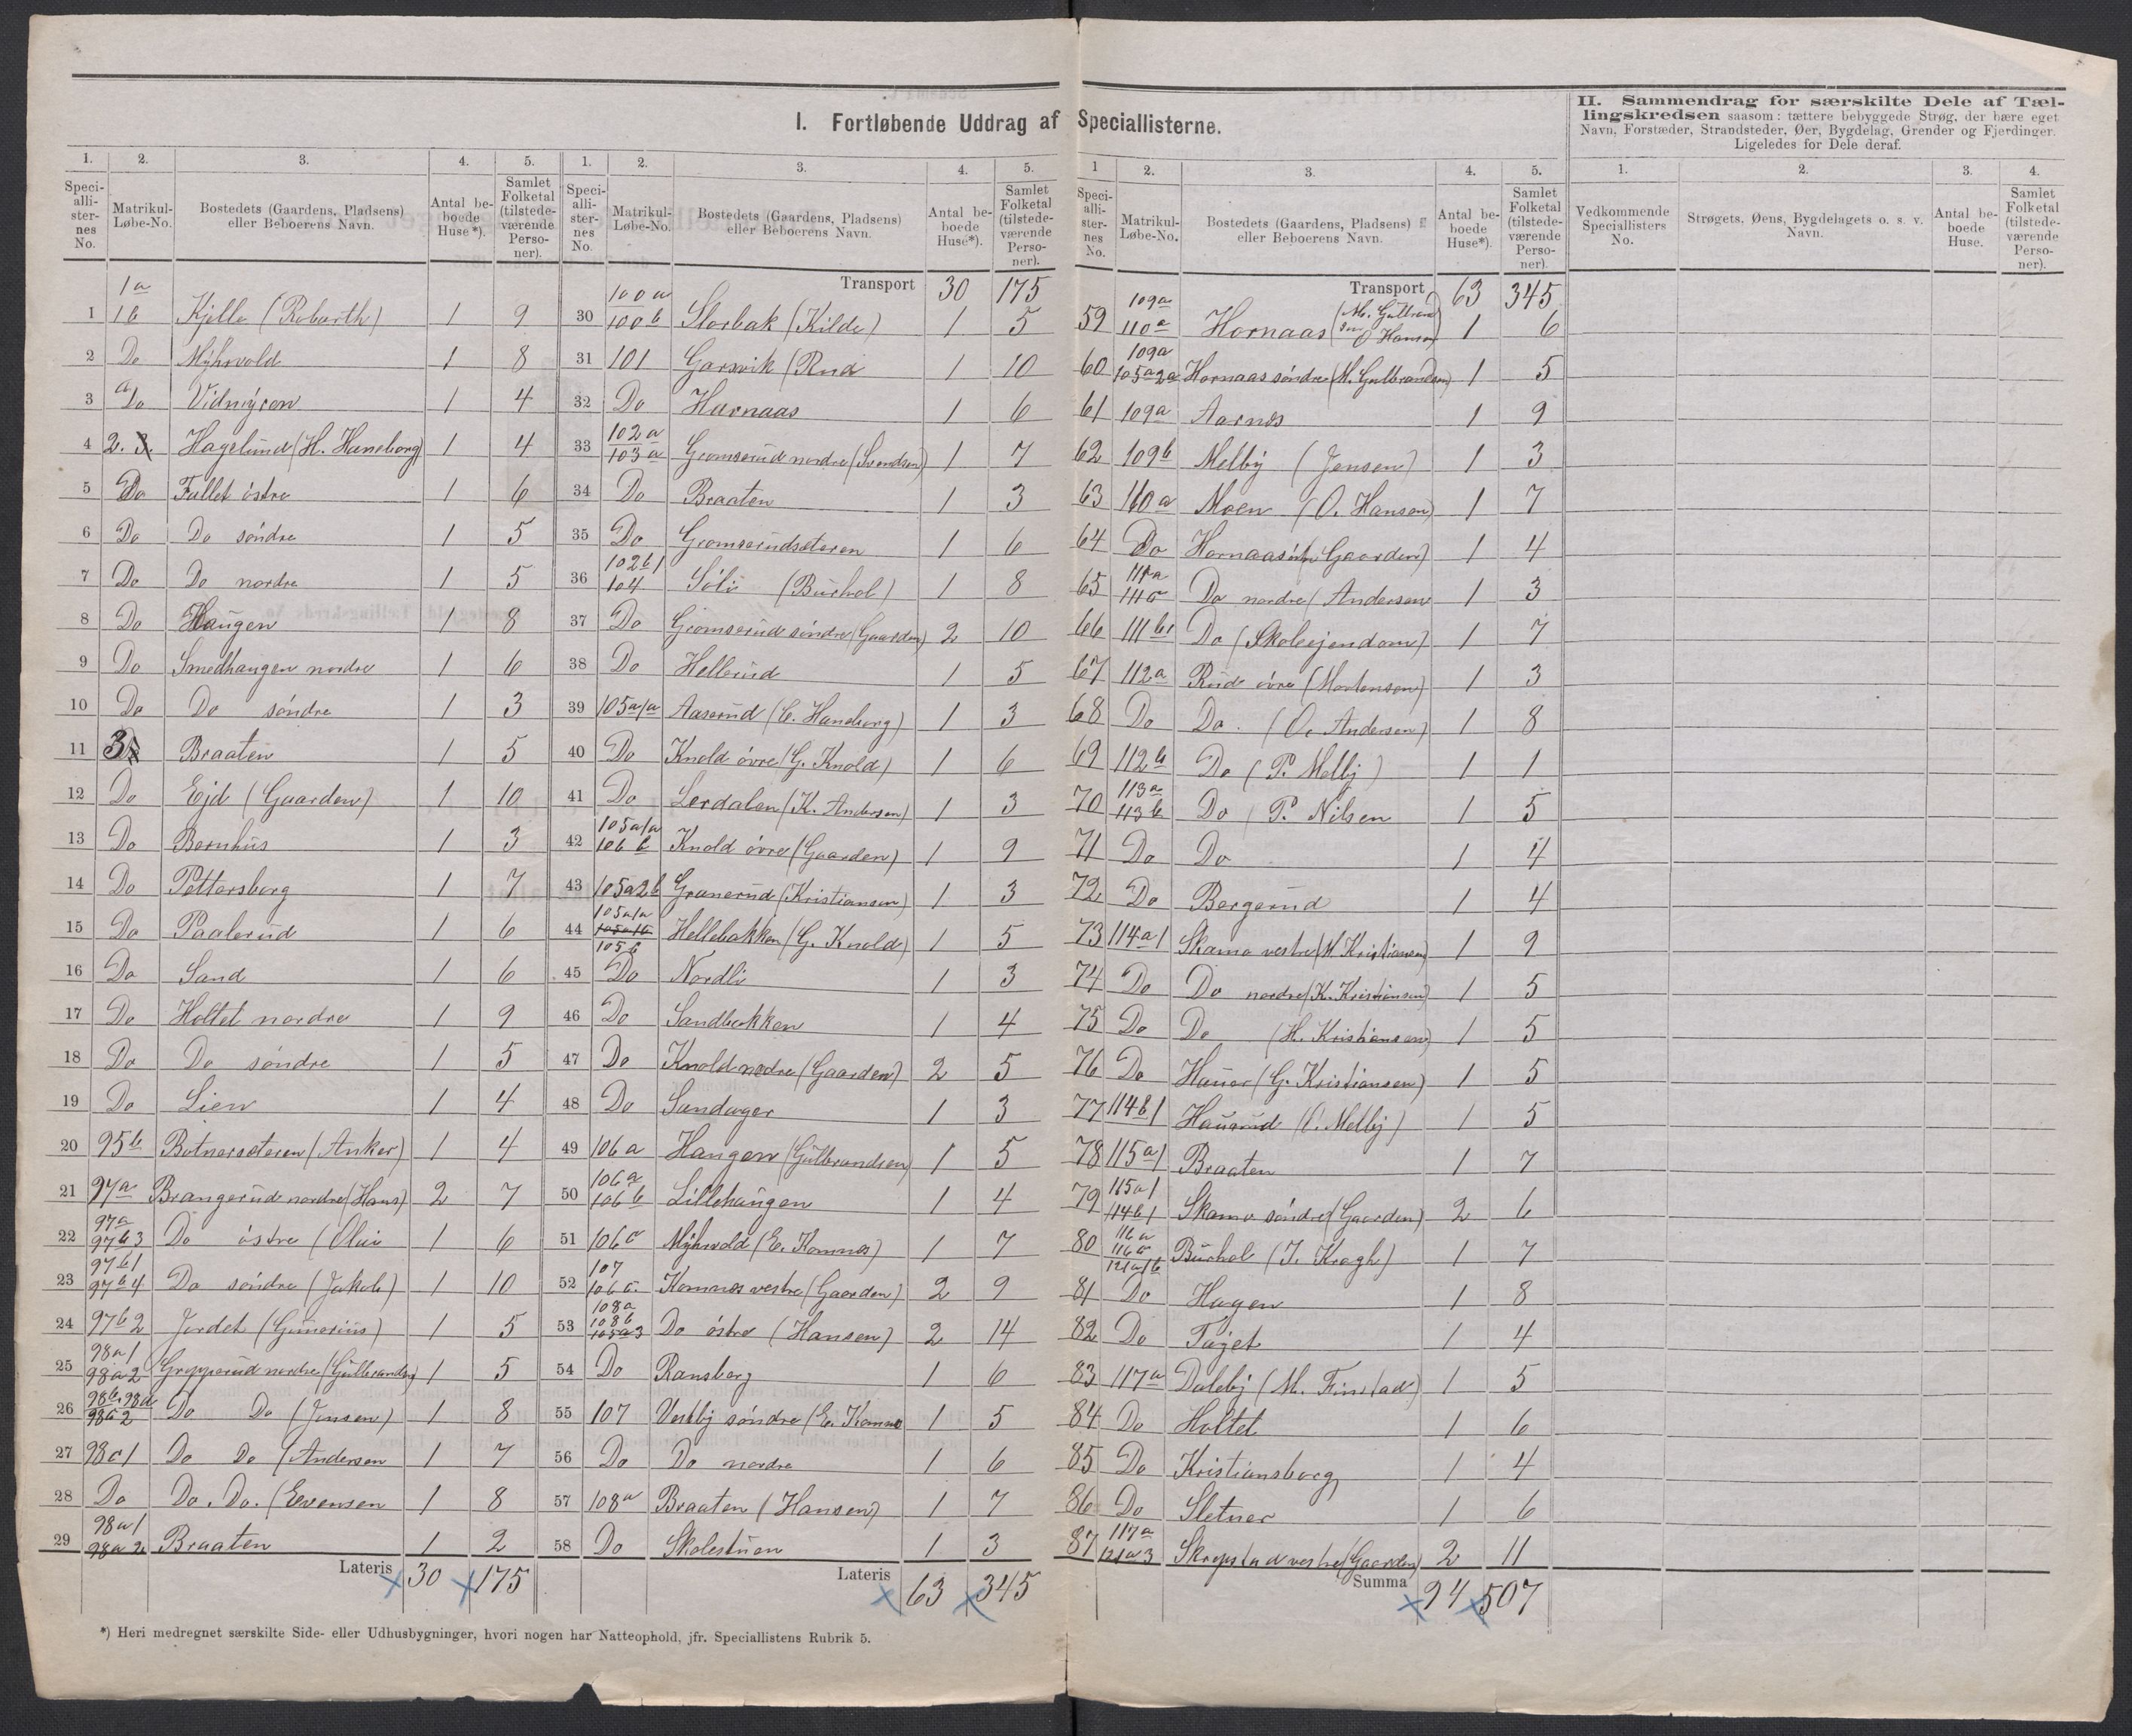 I. Fortløbende Uddrag af Speciallisterne.
II. Sammendrag for særskilte Dele af Tæl-
lingskredsen saasom: tættere bebyggede Strøg, der bære eget
Navn, Forstæder, Strandsteder, Øer, Bygdelag, Grender og Fjerdinger.
Ligeledes for Dele deraf.
1. 2. 3. 4. 5.
Speci-alli-ster-nes No. Matrikul-Løbe-No. Bostedets (Gaardens, Pladsens) eller Beboerens Navn. Antal be-boede Huse*). Samlet Folketal (tilstede-værende Perso-ner).
1 1a 1b Kjelle (Robarth) 1 9
2 Do Myhrvold 1 8
3 Do Vidmyren 1 4
4 2. 3. Hagelund (H. Haneborg) 1 4
5 Do Fallet östre 1 6
6 Do Do söndre 1 5
7 Do Do nordre 1 5
8 Do Haugen 1 8
9 Do Smedhaugen nordre 1 6
10 Do Do söndre 1 3
11 3 Braaten 1 5
12 Do Ejd (Gaarden) 1 10
13 Do Bernhus 1 3
14 Do Pettersborg 1 7
15 Do Paalerud 1 6
16 Do Sand 1 6
17 Do Holtet nordre 1 9
18 Do Do söndre 1 5
19 Do Lien 1 4
20 95b Botnersæteren (Anker) 1 4
21 97a Brangerud nordre (Hans) 2 7
22 97a 97b3 Do östre (Olai 1 6
23 97b1 97b4 Do söndre (Jakob) 1 10
24 97b2 Jordet (Gunerius) 1 5
25 98a1 98a2 Gropperud nordre (Gulbrandsen) 1 5
26 98b. 98d 98c2 Do Do (Jensen) 1 8
27 98c1 Do Do (Andersen 1 7
28 Do Do. Do. (Evensen 1 8
29 98a1 98a2 Braaten 1 2
Lateris 30 175
1. 2. 3. 4. 5.
Speci-alli-ster-nes No. Matrikul-Løbe-No. Bostedets (Gaardens, Pladsens) eller Beboerens Navn. Antal be-boede Huse*). Samlet Folketal (tilstede-værende Perso-ner).
Transport 30 175
30 100a 100b Storbæk (Kilde) 1 5
31 101 Garsvik (Rud 1 10
32 Do Harnaas 1 6
33 102a 103a Gromserud nordre (Svendsen) 1 7
34 Do Braaten 1 3
35 Do Gromserudsæteren 1 6
36 102b1 104 Söli (Burhol) 1 8
37 Do Gromserud söndre (Gaarden) 2 10
38 Do Hellerud 1 5
39 105a1a Aaserud (C. Haneborg) 1 3
40 Do Knold övre (G. Knold) 1 6
41 Do Lerdalen (K. Andersen) 1 3
42 105a1a 106b Knold övre (Gaarden) 1 9
43 105a2b Granerud (Kristiansen) 1 3
44 105a1a 105a1b 105b Hellebakken (G. Knold) 1 5
45 Do Nordli 1 3
46 Do Sandbakken 1 4
47 Do Knold nedre (Gaarden) 2 5
48 Do Sandager 1 3
49 106a Haugen (Gulbrandsen) 1 5
50 106a 106b Lillehaugen 1 4
51 106c Myhrvold (E. Komnes) 1 7
52 107 106c. Komnes vestre (Gaarden) 2 9
53 108a 108b 105a3 Do östre (Hansen) 2 14
54 Do Ransborg 1 6
55 107 Vestby söndre (E. Komnes 1 5
56 Do Do nordre 1 6
57 108a Braaten (Hansen) 1 7
58 Do Skolestuen 1 3
Lateris 63 345
1 2. 3. 4. 5.
Speci-alli-ster-nes No. Matrikul-Løbe-No. Bostedets (Gaardens, Pladsens) eller Beboerens Navn. Antal be-boede Huse*). Samlet Folketal (tilstede-værende Perso-ner).
Transport 63 345
59 109a 110a Hornaas (M. Gulbrandsen O Hansen) 1 6
60 109a 105a2a Hornaas söndre (M. Gulbrandsen) 1 5
61 109a Aarnes 1 9
62 109b Melby (Jensen) 1 3
63 110a Moen (O. Hansen) 1 7
64 Do Hornaas östre Gaarden) 1 4
65 111a 111c Do nordre (Andersen 1 3
66 111b1 Do (Skoleejendom) 1 7
67 112a Rud övre (Mortensen) 1 3
68 Do Do. (O. Andersen) 1 8
69 112b Do (P. Melby) 1 1
70 113a 113b Do (P. Nilsen 1 5
71 Do Do 1 4
72 Do Bergerud 1 4
73 114a1 Skamo vestre (M. Kristiansen) 1 9
74 Do Do nordre (K. Kristiansen) 1 5
75 Do Do (H. Kristiansen) 1 5
76 Do Hauer (G. Kristiansen) 1 5
77 114b1 Hauerud (C. Melby) 1 5
78 115a1 Braaten 1 7
79 115a1 114b1 Skamo söndre (Gaarden) 2 6
80 116a 116c 121a1b Burhol (J. Kragh) 1 7
81 Do Hagen 1 8
82 Do Tajet 1 4
83 117a Daleby (M. Finstad) 1 5
84 Do Holtet 1 6
85 Do Kristiansborg 1 4
86 Do Sletner 1 6
87 117a 121a3 Skrepstad vestre (Gaarden) 2 11
Summa 94 507
1. 2. 3. 4.
Vedkommende Speciallisters No. Strøgets, Øens, Bygdelagets o. s. v. Navn. Antal be-boede Huse. Samlet Folketal (tilstede-værende Perso-ner).
*) Heri medregnet særskilte Side- eller Udhusbygninger, hvori nogen har Natteophold, jfr. Speciallistens Rubrik 5.